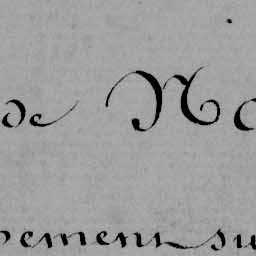 de No
pement su